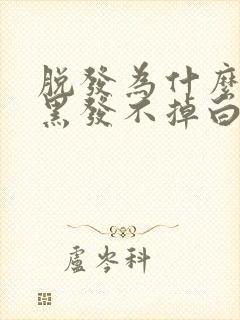 脱發為什麼
黑發不掉白
盧岑科